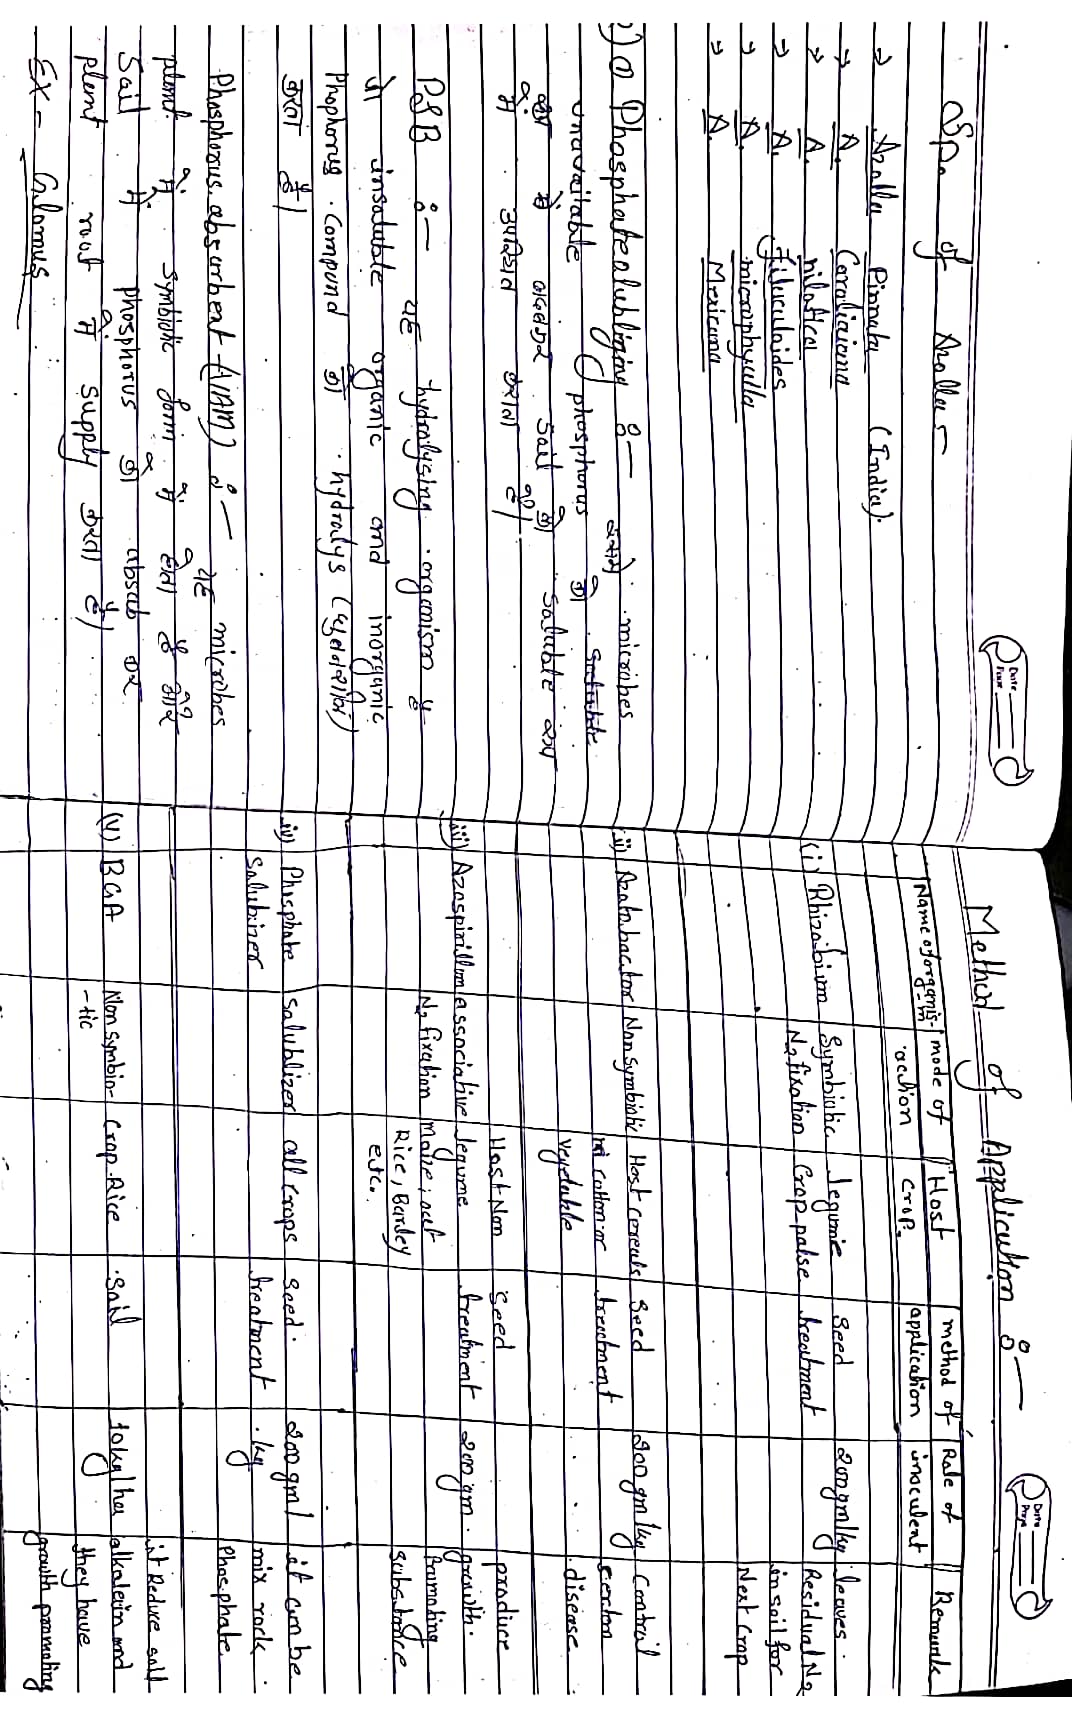 Date
Page
Spe of Azolla :-
→ Azolla Pinnata (India).
→ A. Caroliaiana
→ A. nilatica
→ A. filuculoides
→ A. microphyculla
→ A. Mexicana
Phosphatealublizing :- microbes
unavailable phosphorus को
बनाकर Soil को Saluble रूप
में उपलब्ध कराता है।
PSB :- यह hydralysing organism है
जो insaluble organic and inorganic
Phophorus Compund को hydralys (घुलनशील)
करता है।
Phosphorous absorbeat (AIAM) :- यह microbes
plant में symbiotic form में होता है और
Sail में phosphorus को absorb कर
plant root में supply करता है।
EX - Glomus
Date
Page
Method of Application :-
Name of organis-m | mode of action | Host crop. | method of application | Rate of inoculent | Remark
(i) Rhizobium | Symbiotic N2 fixation | legume Crop-pulse | Seed treatment | 200gm/kg | leaves Residual N2 in soil for Next crop
ii) Azatobactor | Nonsymbiotic | Host cereals cotton or vegetable | Seed treatment | 200 gm/kg | Control disease
iii) Azospirillum | associative N2 fixation | Host Non legume maize, oat Rice, Barley etc. | Seed treatment | 200 gm. | produce growth. Pramoting substance
iv) Phosphate Salubizer | Salublizer | all crops | Seed treatment | 200 gm/kg | it can be mix rock Phosphate
(v) BGA | Non symbio-tic | Crop-Rice | Sail | 10kg/ha | it Reduce salt alkalein and they have growth pramoting